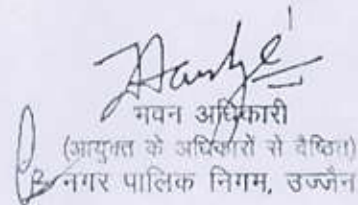 भवन अधिकारी
(आयुक्त के अधिकारों से वेष्ठित)
नगर पालिक निगम, उज्जैन